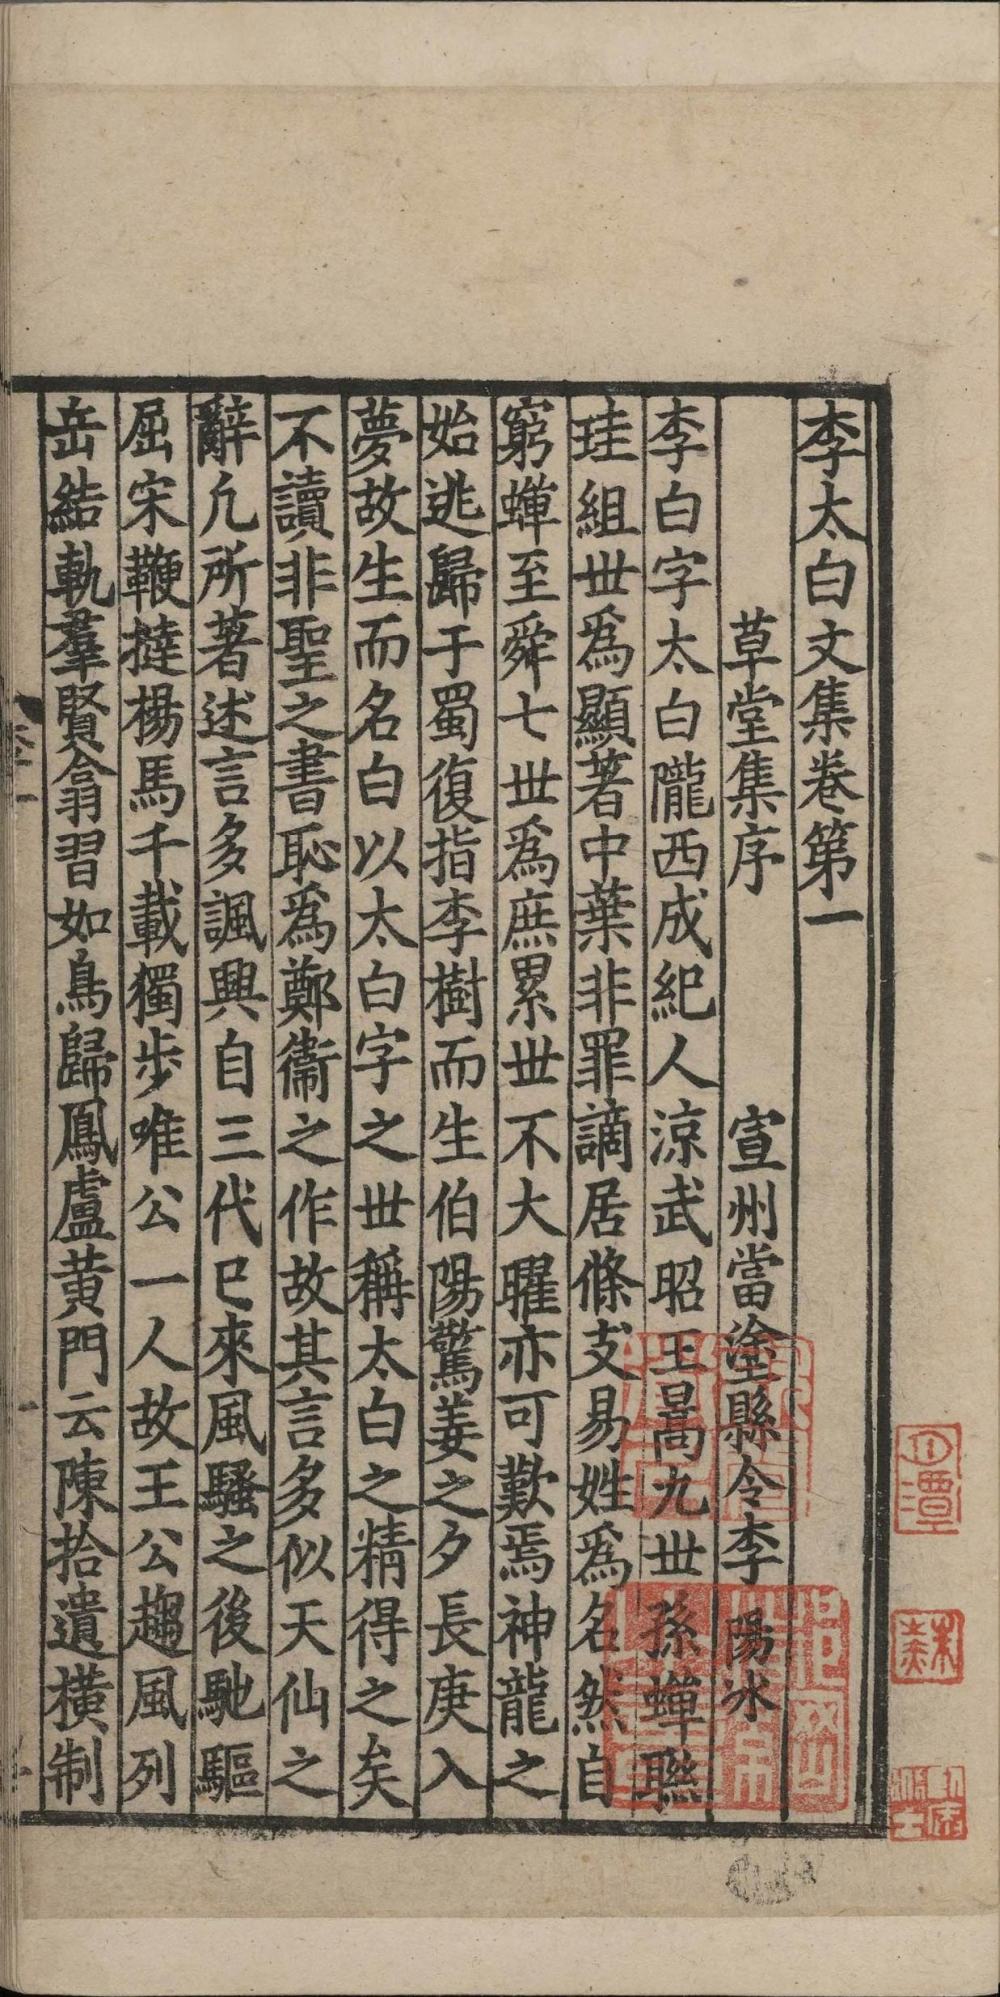 李太白文集卷第一
草堂集序　宣州當塗縣令李陽冰
李白字太白隴西成紀人涼武昭王暠九世孫蟬聯
珪組世爲顯著中葉非罪謫居條支易姓爲名然自
窮蟬至舜七世爲庶累世不大曜亦可歎焉神龍之
始逃歸于蜀復指李樹而生伯陽驚姜之夕長庚入
夢故生而名白以太白字之世稱太白之精得之矣
不讀非聖之書恥爲鄭衞之作故其言多似天仙之
辭凡所著述言多諷興自三代已來風騷之後馳驅
屈宋鞭撻楊馬千載獨步唯公一人故王公趨風列
岳結軌羣賢翕習如鳥歸鳳盧黃門云陳拾遺橫制